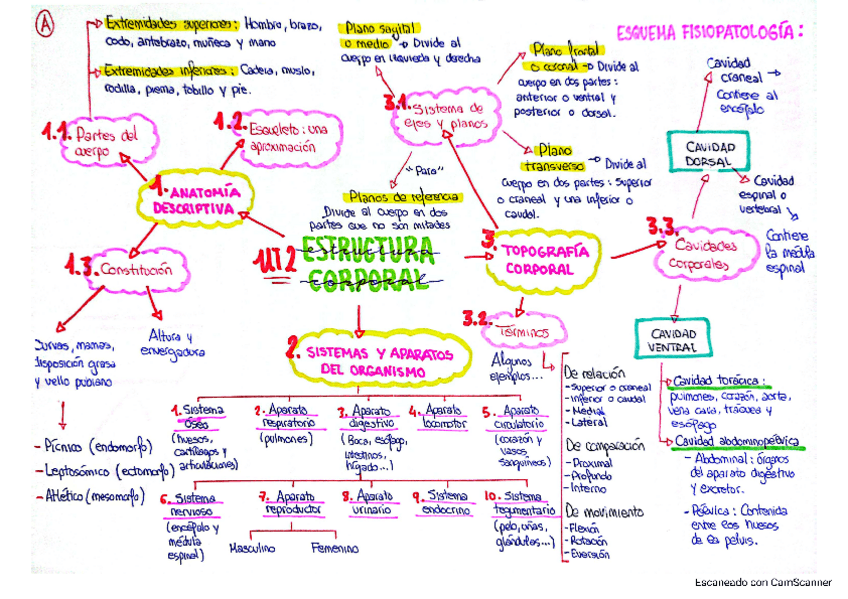 A
ESQUEMA FISIOPATOLOGÍA:
Extremidades superiores: Hombro, brazo,
codo, antebrazo, muñeca y mano
Extremidades inferiores: Cadera, muslo,
rodilla, pierna, tobillo y pie.
1.1. Partes del
cuerpo
1.2. Esqueleto: una
aproximación
1. ANATOMÍA
DESCRIPTIVA
1.3. Constitución
Curvas, mamas,
disposición grasa
y vello pubiano
Altura y
envergadura
- Pícnico (endomorfo)
- Leptosómico (ectomorfo)
- Atlético (mesomorfo)
UT2 ESTRUCTURA
CORPORAL
estructura
corporal
Plano sagital
o medio → Divide al
cuerpo en izquierda y derecha
3.1. Sistema de
ejes y planos
"Para"
Planos de referencia
Divide al cuerpo en dos
partes que no son mitades
Plano frontal
o coronal → Divide al
cuerpo en dos partes:
anterior o ventral y
posterior o dorsal.
Plano
transverso → Divide al
cuerpo en dos partes: superior
o craneal y una inferior o
caudal.
3. TOPOGRAFÍA
CORPORAL
3.2.
Términos
Algunos
ejemplos...
De relación
- Superior o craneal
- Inferior o caudal
- Medial
- Lateral
De comparación
- Proximal
- Profundo
- Interno
De movimiento
- Flexión
- Rotación
- Eversión
3.3.
Cavidades
corporales
CAVIDAD
DORSAL
Cavidad
craneal →
Contiene al
encéfalo
Cavidad
espinal o
vertebral
Contiene
la médula
espinal
CAVIDAD
VENTRAL
Cavidad torácica:
pulmones, corazón, aorta,
vena cava, tráquea y
esófago
Cavidad abdominopélvica
- Abdominal: órganos
del aparato digestivo
y excretor.
- Pélvica: Contenida
entre los huesos
de la pelvis.
2. SISTEMAS Y APARATOS
DEL ORGANISMO
1. Sistema
óseo
(huesos,
cartílagos y
articulaciones)
2. Aparato
respiratorio
(pulmones)
3. Aparato
digestivo
(Boca, esófago,
intestinos,
hígado...)
4. Aparato
locomotor
5. Aparato
circulatorio
(corazón y
vasos
sanguíneos)
6. Sistema
nervioso
(encéfalo y
médula
espinal)
7. Aparato
reproductor
Masculino
Femenino
8. Aparato
urinario
9. Sistema
endocrino
10. Sistema
tegumentario
(pelo, uñas,
glándulas...)
Escaneado con CamScanner